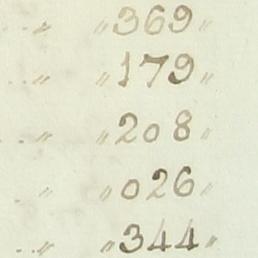 .. „ „ 369 „
.. „ „ 179 „
.. „ „ 208 „
. „ „ 026 „
.. „ „ 344 „